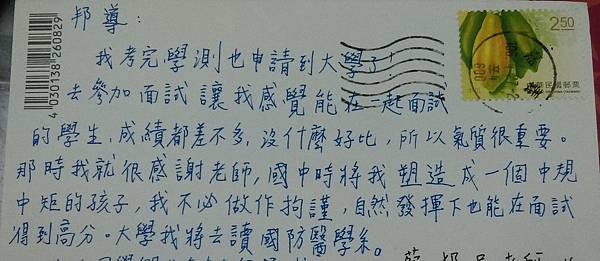 邦導:
我考完學測也申請到大學了!
去參加面試讓我感覺能在一起面試
的學生,成績都差不多,沒什麼好比,所以氣質很重要。
那時我就很感謝老師,國中時將我塑造成一個中規
中矩的孩子,我不必做作拘謹,自然發揮下也能在面試
得到高分。大學我將去讀國防醫學系。
4030138260829
2.50
中華民國郵票